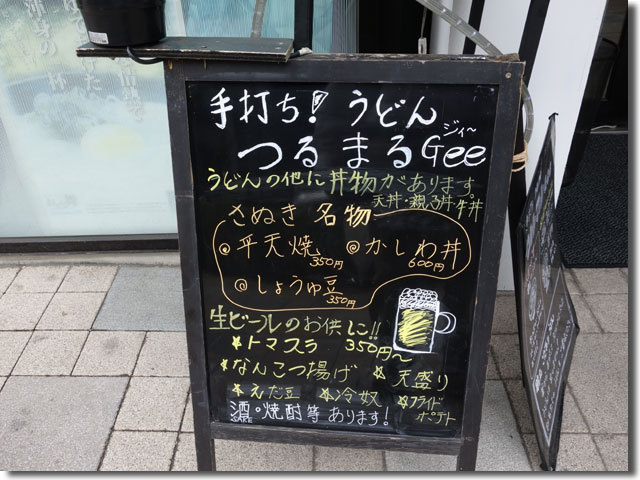 手打ち! うどん
ジィ〜
つる まる Gee
うどんの他に丼物があります
天丼・親子丼・牛丼
さぬき 名物
◎平天焼 350円 ◎かしわ丼 600円
◎しょうゆ豆 350円
生ビールのお供に!!
☆トマスラ 350円〜
☆なんこつ揚げ ☆天盛り
☆えだ豆 ☆冷奴 ☆フライドポテト
酒・焼酎等 あります!
SAKE